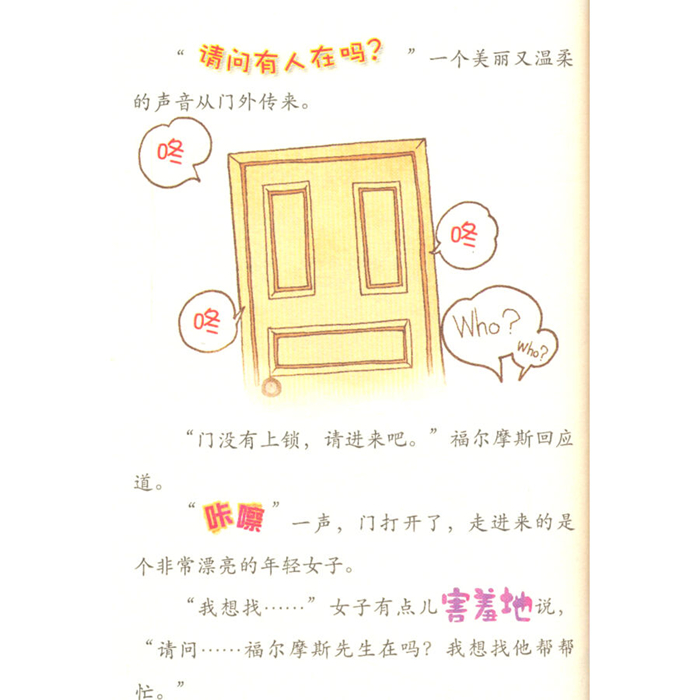 “请问有人在吗?”一个美丽又温柔
的声音从门外传来。
咚
咚
咚
Who?
Who?
“门没有上锁，请进来吧。”福尔摩斯回应
道。
“咔嚓”一声，门打开了，走进来的是
个非常漂亮的年轻女子。
“我想找……”女子有点儿害羞地说，
“请问……福尔摩斯先生在吗？我想找他帮帮
忙。”